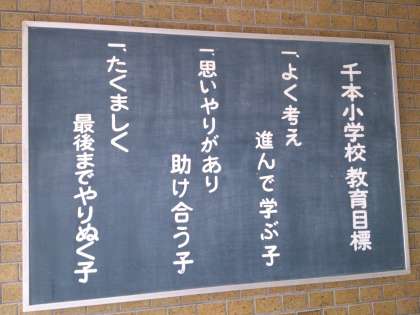 千本小学校 教育目標
一、よく考え
進んで学ぶ子
一、思いやりがあり
助け合う子
一、たくましく
最後までやりぬく子